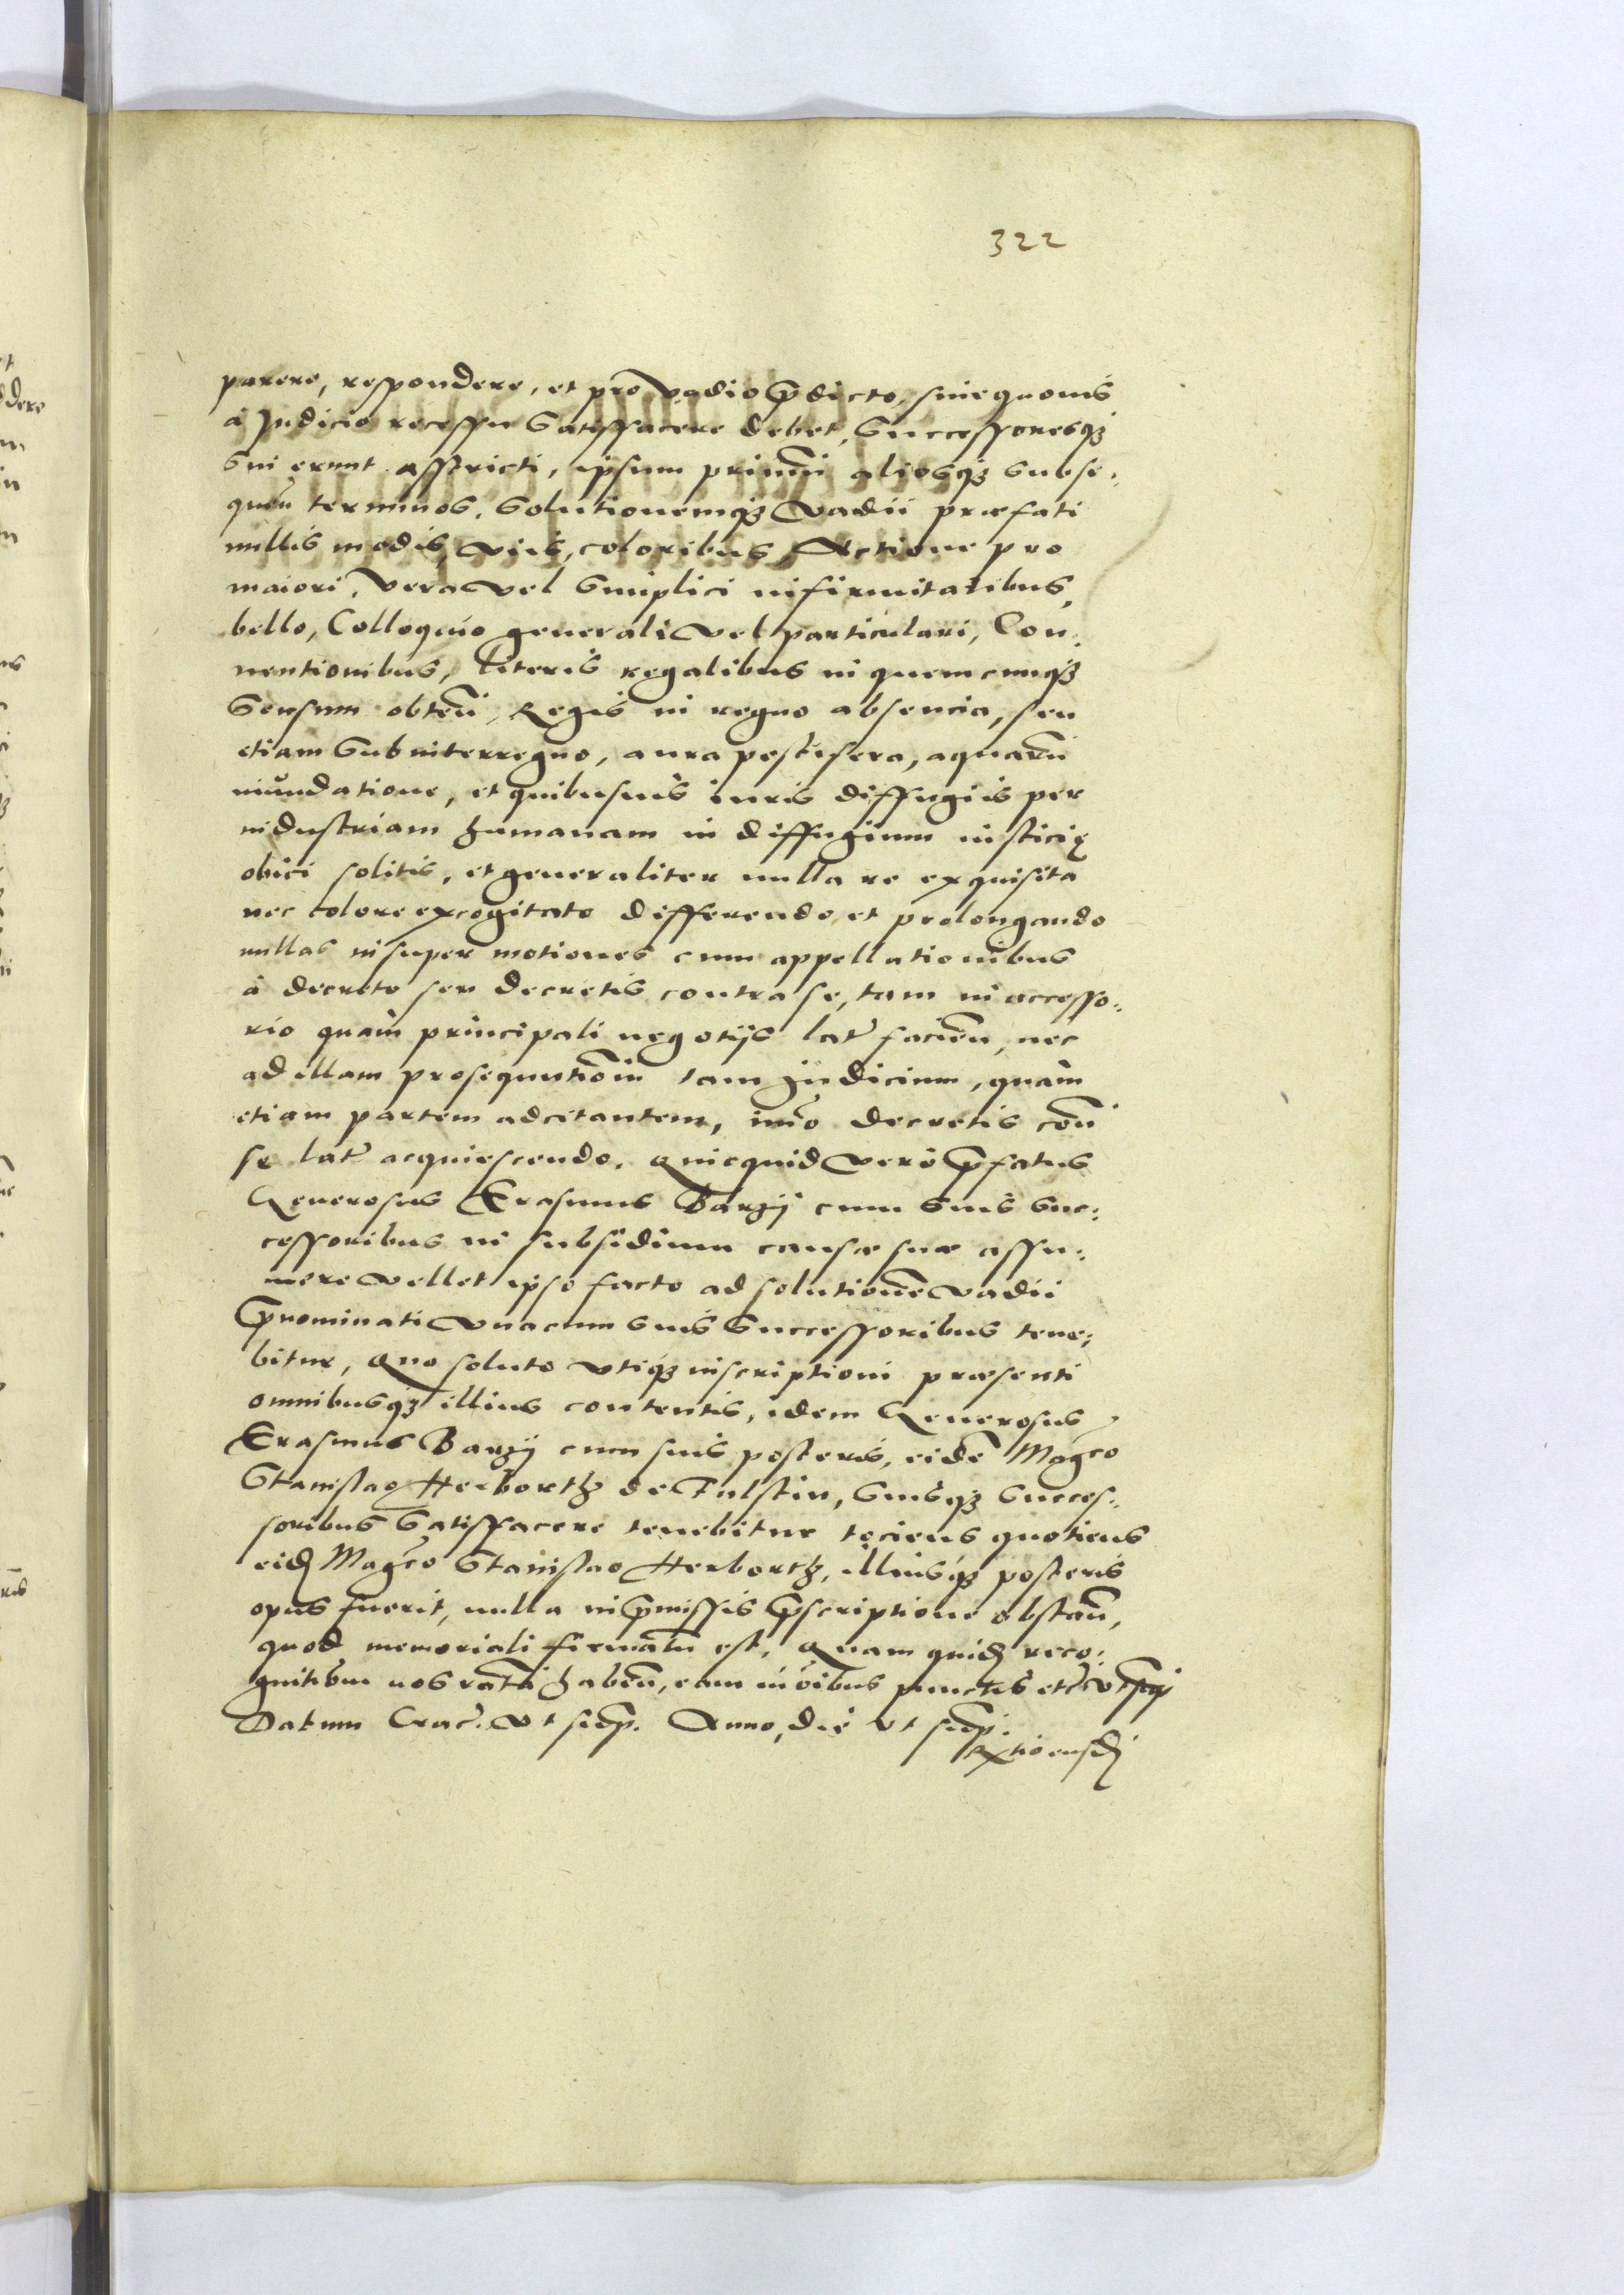 322
parere, respondere, et pro vadio p̄dicto, sine quovis
à Judicio recessu satisfacere debet, Successoresq3
sui erunt astricti, ipsum primū aliosq3 subse:
queñ terminos, solutionemq3 vadii præfati
nullis modis, viis, coloribus, Actione pro
maiori, vera vel simplici infirmitatibus,
bello, Colloquio generali vel particulari, Con:
ventionibus, Literis regalibus in quemcunq3
sensum obteñ, Regis in regno absencia, seu
etiam sub interregno, aura pestifera, aquarū
inundatione, et quibusuis iuris diffugiis per
industriam humanam in diffugium iusticię
obiici solitis, et generaliter nulla re exquisita
nec colore excogitato differendo et prolongando
nullas insuper motiones cum appellationibus
à decreto seu decretis contra se, tam in accesso:
rio quàm principali negotijs lať facieñ, nec
ad illam prosequutioēm tam Judicium, quàm
etiam partem adcitantem, imo decretis coñ
se lať acquiescendo. Quicquid vero p̄fatus
Generosus Erasmus Barzij cum suis suc:
cessoribus in subsidium causæ suæ assu:
mere vellet ipso facto ad solutionē vadii
p̄nominati vnacum suis Successoribus tene:
bitur, Quo soluto vtiq3 inscriptioni præsenti
omnibusq3 illius contentis, idem Generosus
Erasmus Barzij cum suis posteris, eidē Mag̃co
Stanislao Herborth de Fulstin, Suisq3 Succes:
soribus Satisfacere tenebitur tociens quotiens
eid Mag̃co Stanislao Herborth, illiusq3 posteris
opus fuerit, nulla in p̄missis p̄scriptione obstañ,
quod memoriali firmatū est, Quam quid reco:
gnitiōm nos ratā habeñ, eam in oībus punctis etc vt
Datum Crac̃. vt Anno, die vt